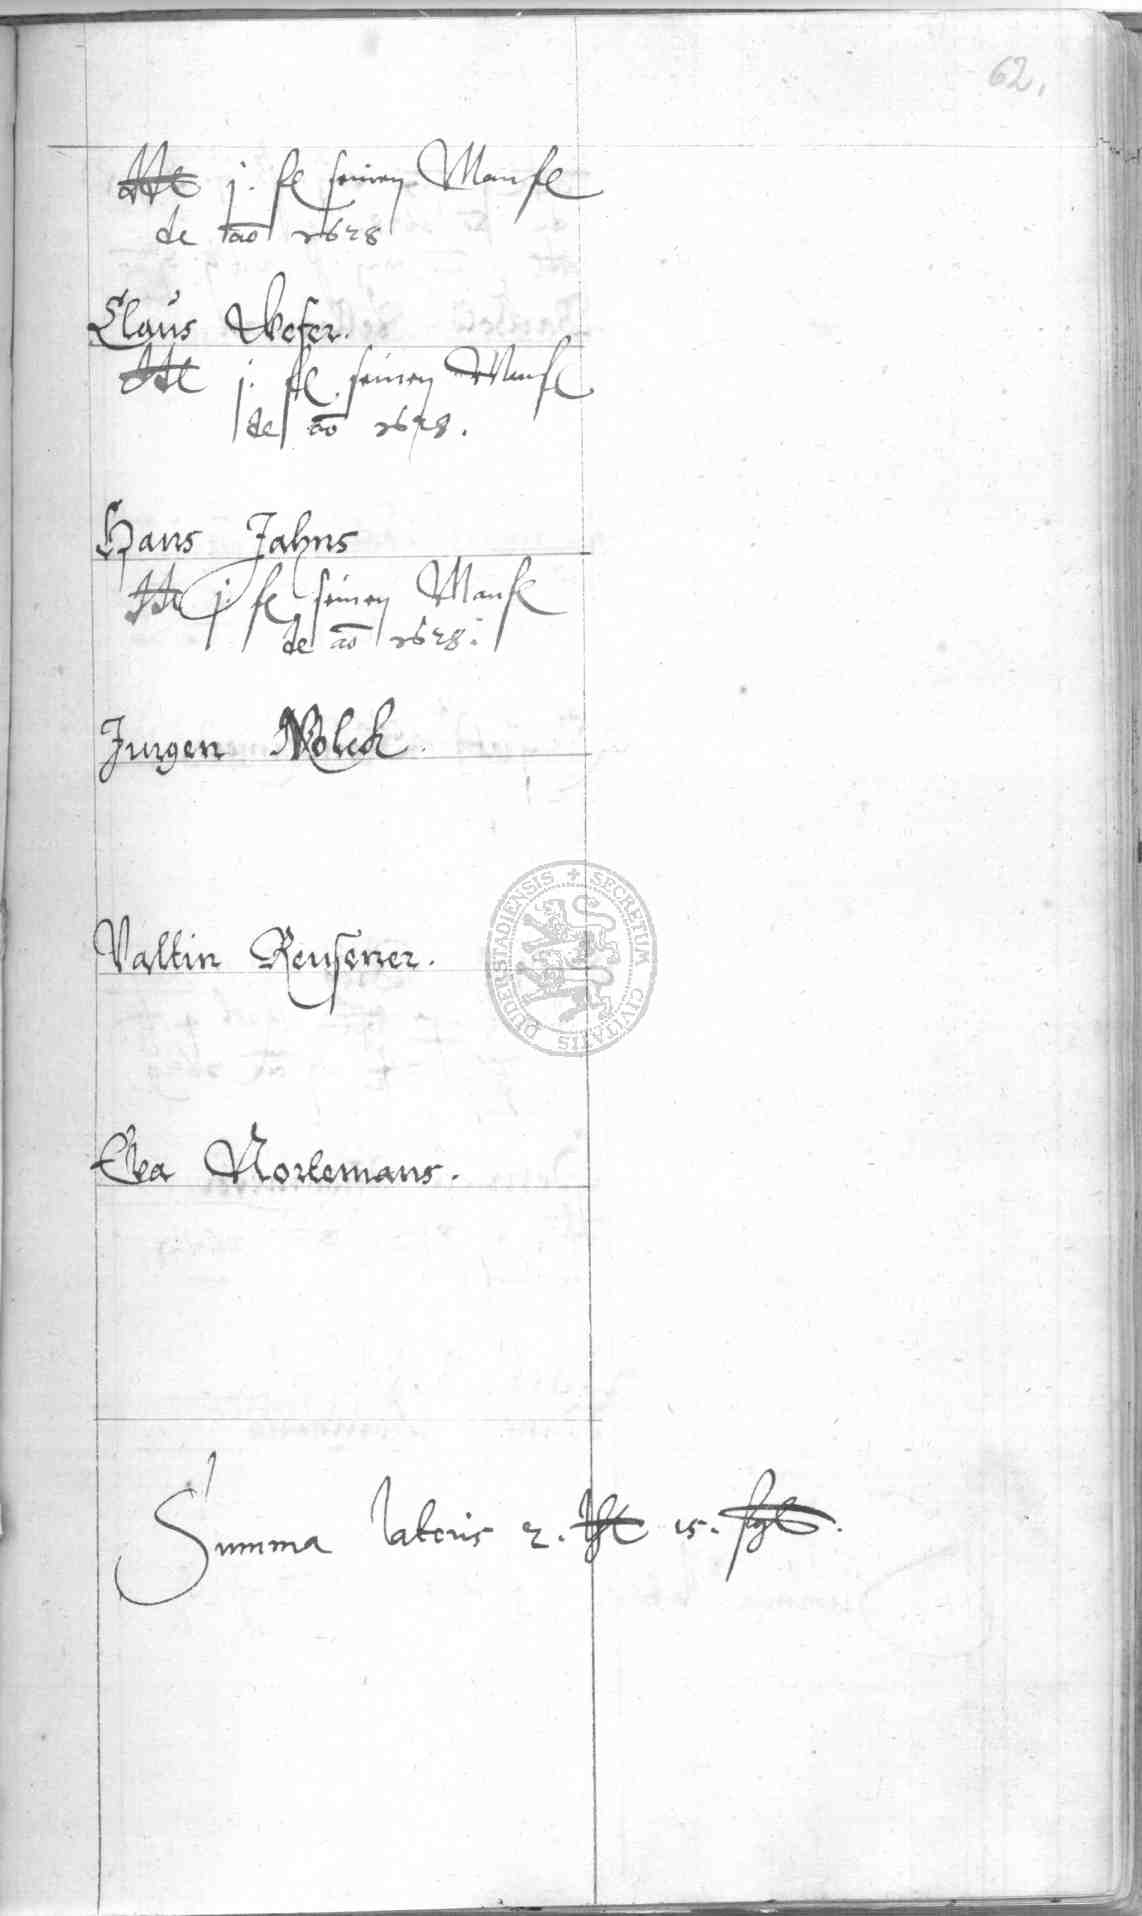 62.
dt j. fl seinen Manfl
de ao 1628
Claus Weser.
dt j. fl. seinen Manfl
de ao 1628.
Hans Jahns
dt j. fl seinen Manfl
de ao 1628.
Jurgen Wolck.
Valtin Reusener.
Eva Nortemans.
Summa lateris 2. 15.
SECRETUM CIVITATIS DUDERSTADIENSIS